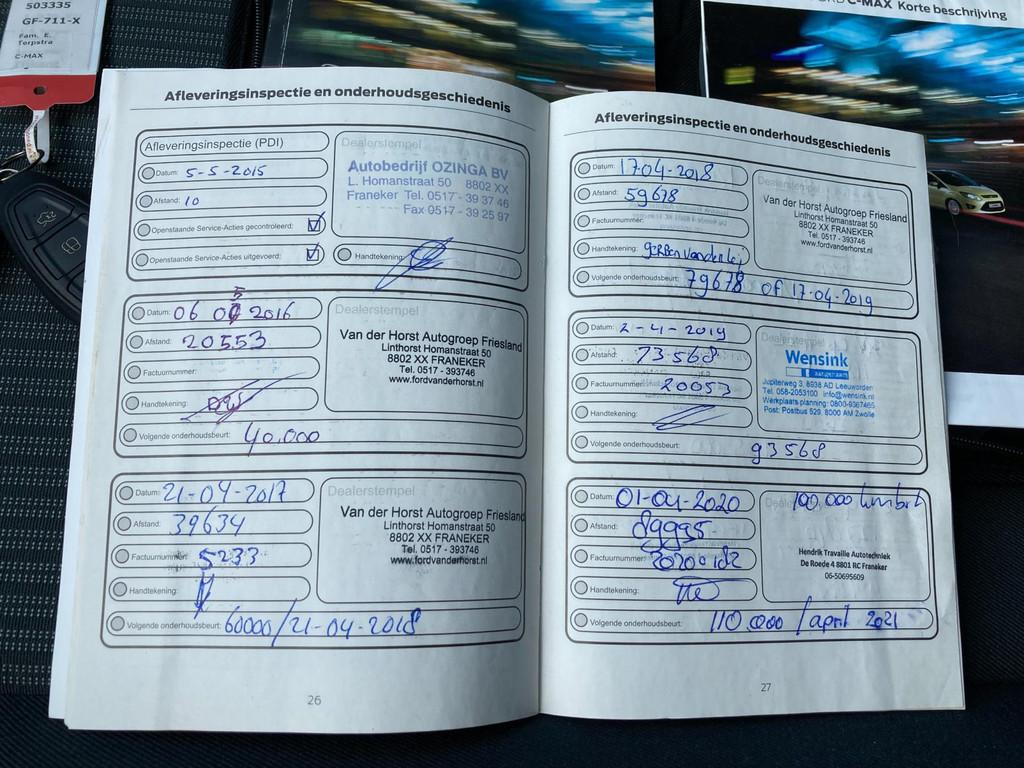 503335
GF-711-X
Fam. E.
Terpstra
C-MAX
C-MAX Korte beschrijving
Afleveringsinspectie en onderhoudsgeschiedenis
Afleveringsinspectie (PDI)
Datum: 5-5-2015
Afstand: 10
Openstaande Service-Acties gecontroleerd:
Openstaande Service-Acties uitgevoerd:
Dealerstempel
Autobedrijf OZINGA BV
L. Homanstraat 50 8802 XX
Franeker Tel. 0517 - 39 37 46
Fax 0517 - 39 25 97
Handtekening:
Datum: 06 2016
Afstand: 20553
Factuurnummer:
Handtekening:
Volgende onderhoudsbeurt: 40.000
Dealerstempel
Van der Horst Autogroep Friesland
Linthorst Homanstraat 50
8802 XX FRANEKER
Tel. 0517 - 393746
www.fordvanderhorst.nl
Datum: 21-04-2017
Afstand: 39634
Factuurnummer: 5233
Handtekening:
Volgende onderhoudsbeurt: 60000/21-04-2018
Dealerstempel
Van der Horst Autogroep Friesland
Linthorst Homanstraat 50
8802 XX FRANEKER
Tel. 0517 - 393746
www.fordvanderhorst.nl
26
Afleveringsinspectie en onderhoudsgeschiedenis
Datum: 17-04-2018
Afstand: 59678
Factuurnummer:
Handtekening:
Volgende onderhoudsbeurt: 79678 of 17-04-2019
Dealerstempel
Van der Horst Autogroep Friesland
Linthorst Homanstraat 50
8802 XX FRANEKER
Tel. 0517 - 393746
www.fordvanderhorst.nl
Datum: 2-4-2019
Afstand: 73568
Factuurnummer: 20053
Handtekening:
Volgende onderhoudsbeurt: 93568
Dealerstempel
Wensink
aangenaam
Jupiterweg 3, 8938 AD Leeuwarden
Tel. 058-2053100 info@wensink.nl
Werkplaats planning: 0800-9367465
Post: Postbus 529, 8000 AM Zwolle
Datum: 01-04-2020
Afstand: 89995
Factuurnummer:
Handtekening:
Volgende onderhoudsbeurt: 110.000 / april 2021
100.000
Hendrik Travaille Autotechniek
De Roede 4 8801 RC Franeker
06-50695609
27